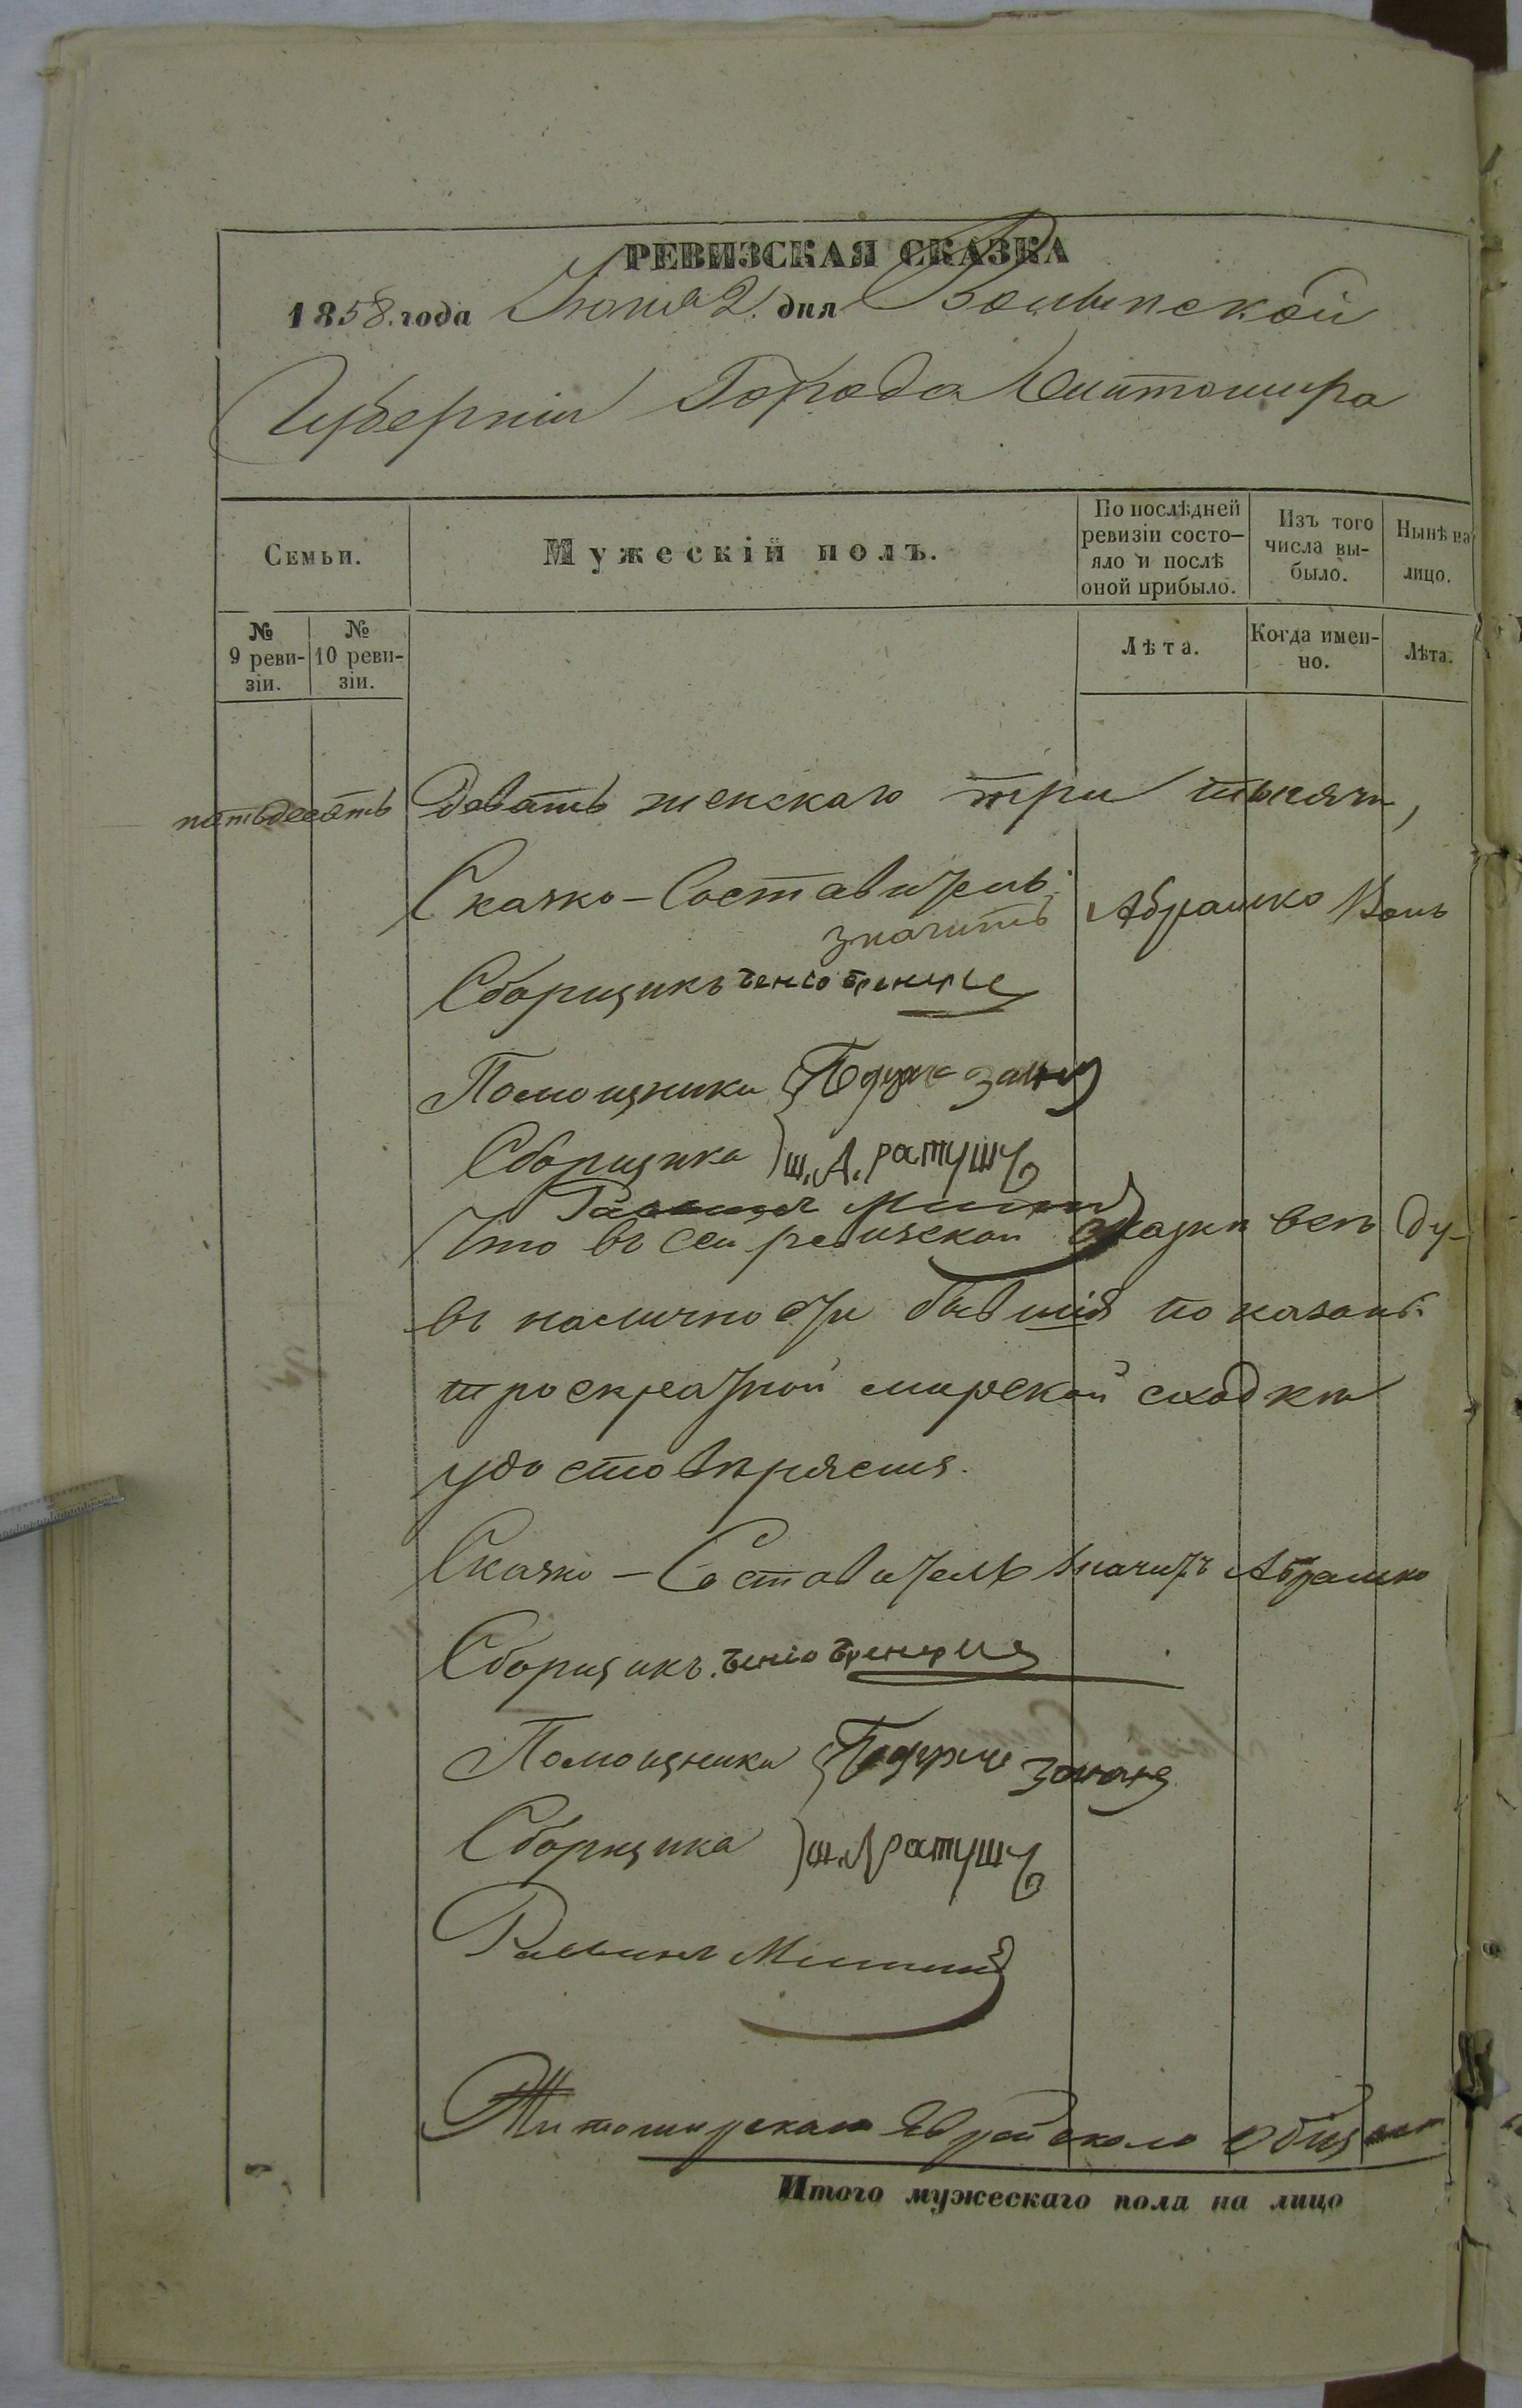 РЕВИЗСКАЯ СКАЗКА
1858. года Іюня 2. дня Волынской
Губерніи Города Житомира
Семьи.
Мужескій полъ.
По послѣдней ревизіи состо-яло и послѣ оной прибыло.
Изъ того числа вы-было.
Нынѣ на лицо.
№ 9 реви-зіи.
№ 10 реви-зіи.
Лѣта.
Когда имен-но.
Лѣта.
пятьдесятъ девять женскаго три тысячи,
Сказко-Составитель
значитъ Абрашко
Сборщикъ
Помощники
Сборщика Ш. А. Ратушн
Раввинъ
Что въ сей ревизской сказки всѣ ду-
въ наличности бывшія показаны
троекратной мирской сходки
удостовѣряемъ.
Сказко-Составитель значитъ Абрашко
Сборщикъ.
Помощники
Сборщика Ратушн
Раввинъ
Житомирскаго Еврейскаго
Итого мужескаго пола на лицо